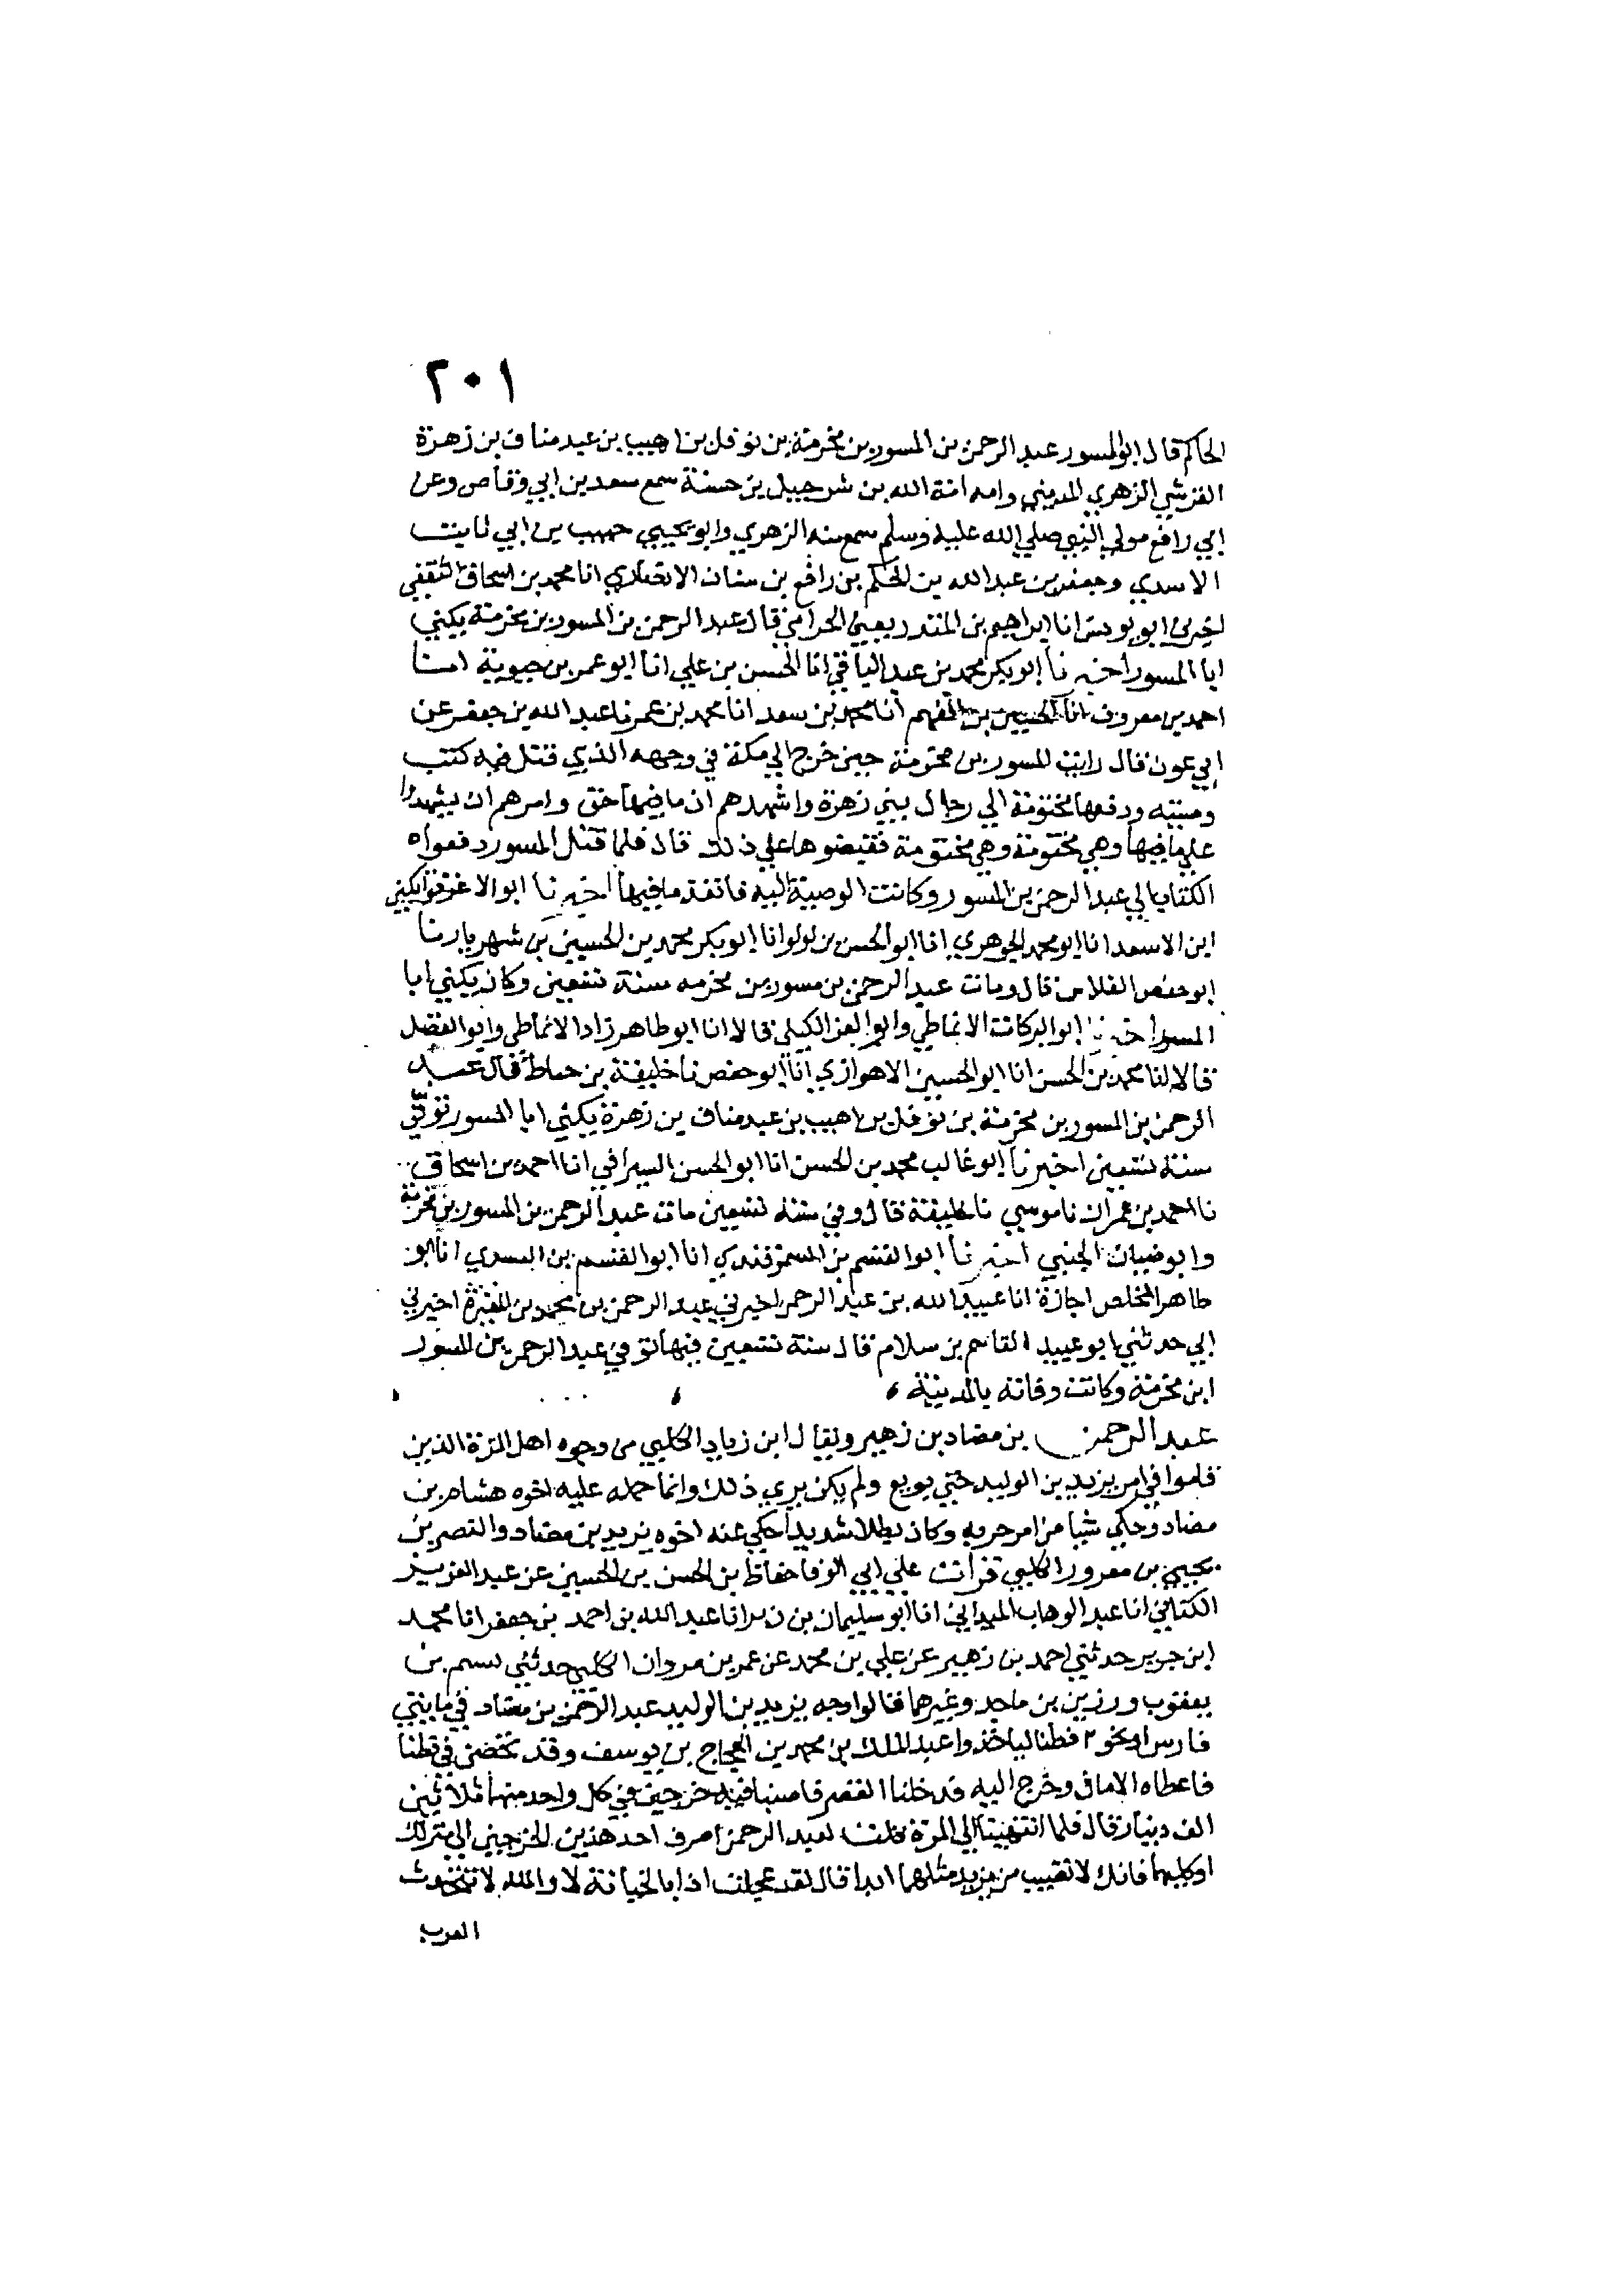 ٢٠١
الحاكم قال ابوالمسور عبد الرحمن بن المسور بن مخرمة بن نوفل بن اهيب بن عبد مناف بن زهرة
القرشي الزهري المديني وامه امة الله بن شرحبيل بن حسنة سمع سعد بن ابي وقاص وعن
ابي رافع مولي النبي صلي الله عليه وسلم سمع منه الزهري وابو يحيي حبيب بن ابي ثابت
الاسدي وجعفر بن عبد الله بن الحكم بن رافع بن سنان الانصاري انا محمد بن اسحاق الثقفي
اخبرني ابو يونس انا ابراهيم بن المنذر يعني الحرامي قال عبد الرحمن بن المسور بن مخرمة يكني
ابا المسور اخبرنا ابو بكر محمد بن عبد الباقي انا الحسن بن علي انا ابو عمر بن حيوية انا
احمد بن معروف انا الحسين بن الفهم انا محمد بن سعد انا محمد بن عمر نا عبد الله بن جعفر عن
ابي عون قال رايت المسور بن مخرمة حين خرج الي مكة في وجهه الذي قتل فيه كتب
وصيته ودفعها مختومة الي رجال بني زهرة واشهدهم ان ما فيها حق وامرهم ان يشهدوا
علي ما فيها وهي مختومة وهي مختومة فقبضوها علي ذلك قال فلما قتل المسور دفعواه
الكتاب الي عبد الرحمن بن المسور وكانت الوصية اليه فانفذ ما فيها اخبرنا ابو الاغر قراتكين
ابن الاسعد انا ابو محمد الجوهري انا ابو الحسن بن لولو انا ابو بكر محمد بن الحسين بن شهريار نا
ابو حفص الفلاس قال ومات عبد الرحمن بن مسور بن مخرمه سنة تسعين وكان يكني ابا
المسور اخبرنا ابو البركات الانماطي وابو العز الكيلي قالا انا ابو طاهر زاد الانماطي وابو الفضل
قالا انا محمد بن الحسن انا ابو الحسين الاهوازي انا ابو حفص نا خليفة بن خياط قال عبد
الرحمن بن المسور بن مخرمة بن نوفل بن اهيب بن عبد مناف بن زهرة يكني ابا المسور توفي
سنة تسعين اخبرنا ابو غالب محمد بن الحسن انا ابو الحسن السيرافي انا احمد بن اسحاق
نا احمد بن عمران نا موسي نا خليفة قال وفي سنة تسعين مات عبد الرحمن بن المسور بن مخرمة
وابو ضبيان الجنبي اخبرنا ابو القسم بن السمرقندي انا ابو القسم بن البسري انا ابو
طاهر المخلص اجازة انا عبيد الله بن عبد الرحمن اخبرني عبد الرحمن بن محمد بن المغيرة اخبرني
ابي حدثني ابو عبيد القاسم بن سلام قال سنة تسعين فيها توفي عبد الرحمن بن المسور
ابن مخرمة وكانت وفاته بالمدينة
عبد الرحمن بن مضاد بن زهير ويقال ابن زياد الكلبي من وجوه اهل المزة الذين
قاموا في امر يزيد بن الوليد حتي بويع ولم يكن يري ذلك وانما حمله عليه اخوه هشام بن
مضاد وحكي شيا من امر حربه وكان بطلا شديدا حكي عنه اخوه يزيد بن مضاد والنصر بن
يحيي بن معرور الكلبي قرات علي ابي الوفا حفاظ بن الحسن بن الحسين عن عبد العزيز
الكتاني انا عبد الوهاب الميداني انا ابو سليمان بن زبر انا عبد الله بن احمد بن جعفر انا محمد
ابن جرير حدثني احمد بن زهير عن علي بن محمد عن عمر بن مروان الكلبي حدثني قسيم بن
يعقوب ورزين بن ماجد وغيرهما قالوا وجه يزيد بن الوليد عبد الرحمن بن مصاد في مايتي
فارس او نحو فطنا لياخذوا عبد الملك بن محمد بن الحجاج بن يوسف وقد تحصن في قطنا
فاعطاه الامان وخرج اليه فدخلنا القصر فاصبنا فيه خرجين في كل واحد منهما ثلاثين
الف دينار قال فلما انتهينا الي المزة قلت لعبد الرحمن اصرف احد هذين الخرجين الي منزلك
او كليهما فانك لا تصيب من يزيد مثلهما ابدا قال لقد عجلت اذا بالخيانة لا والله لا تتحدث
العرب